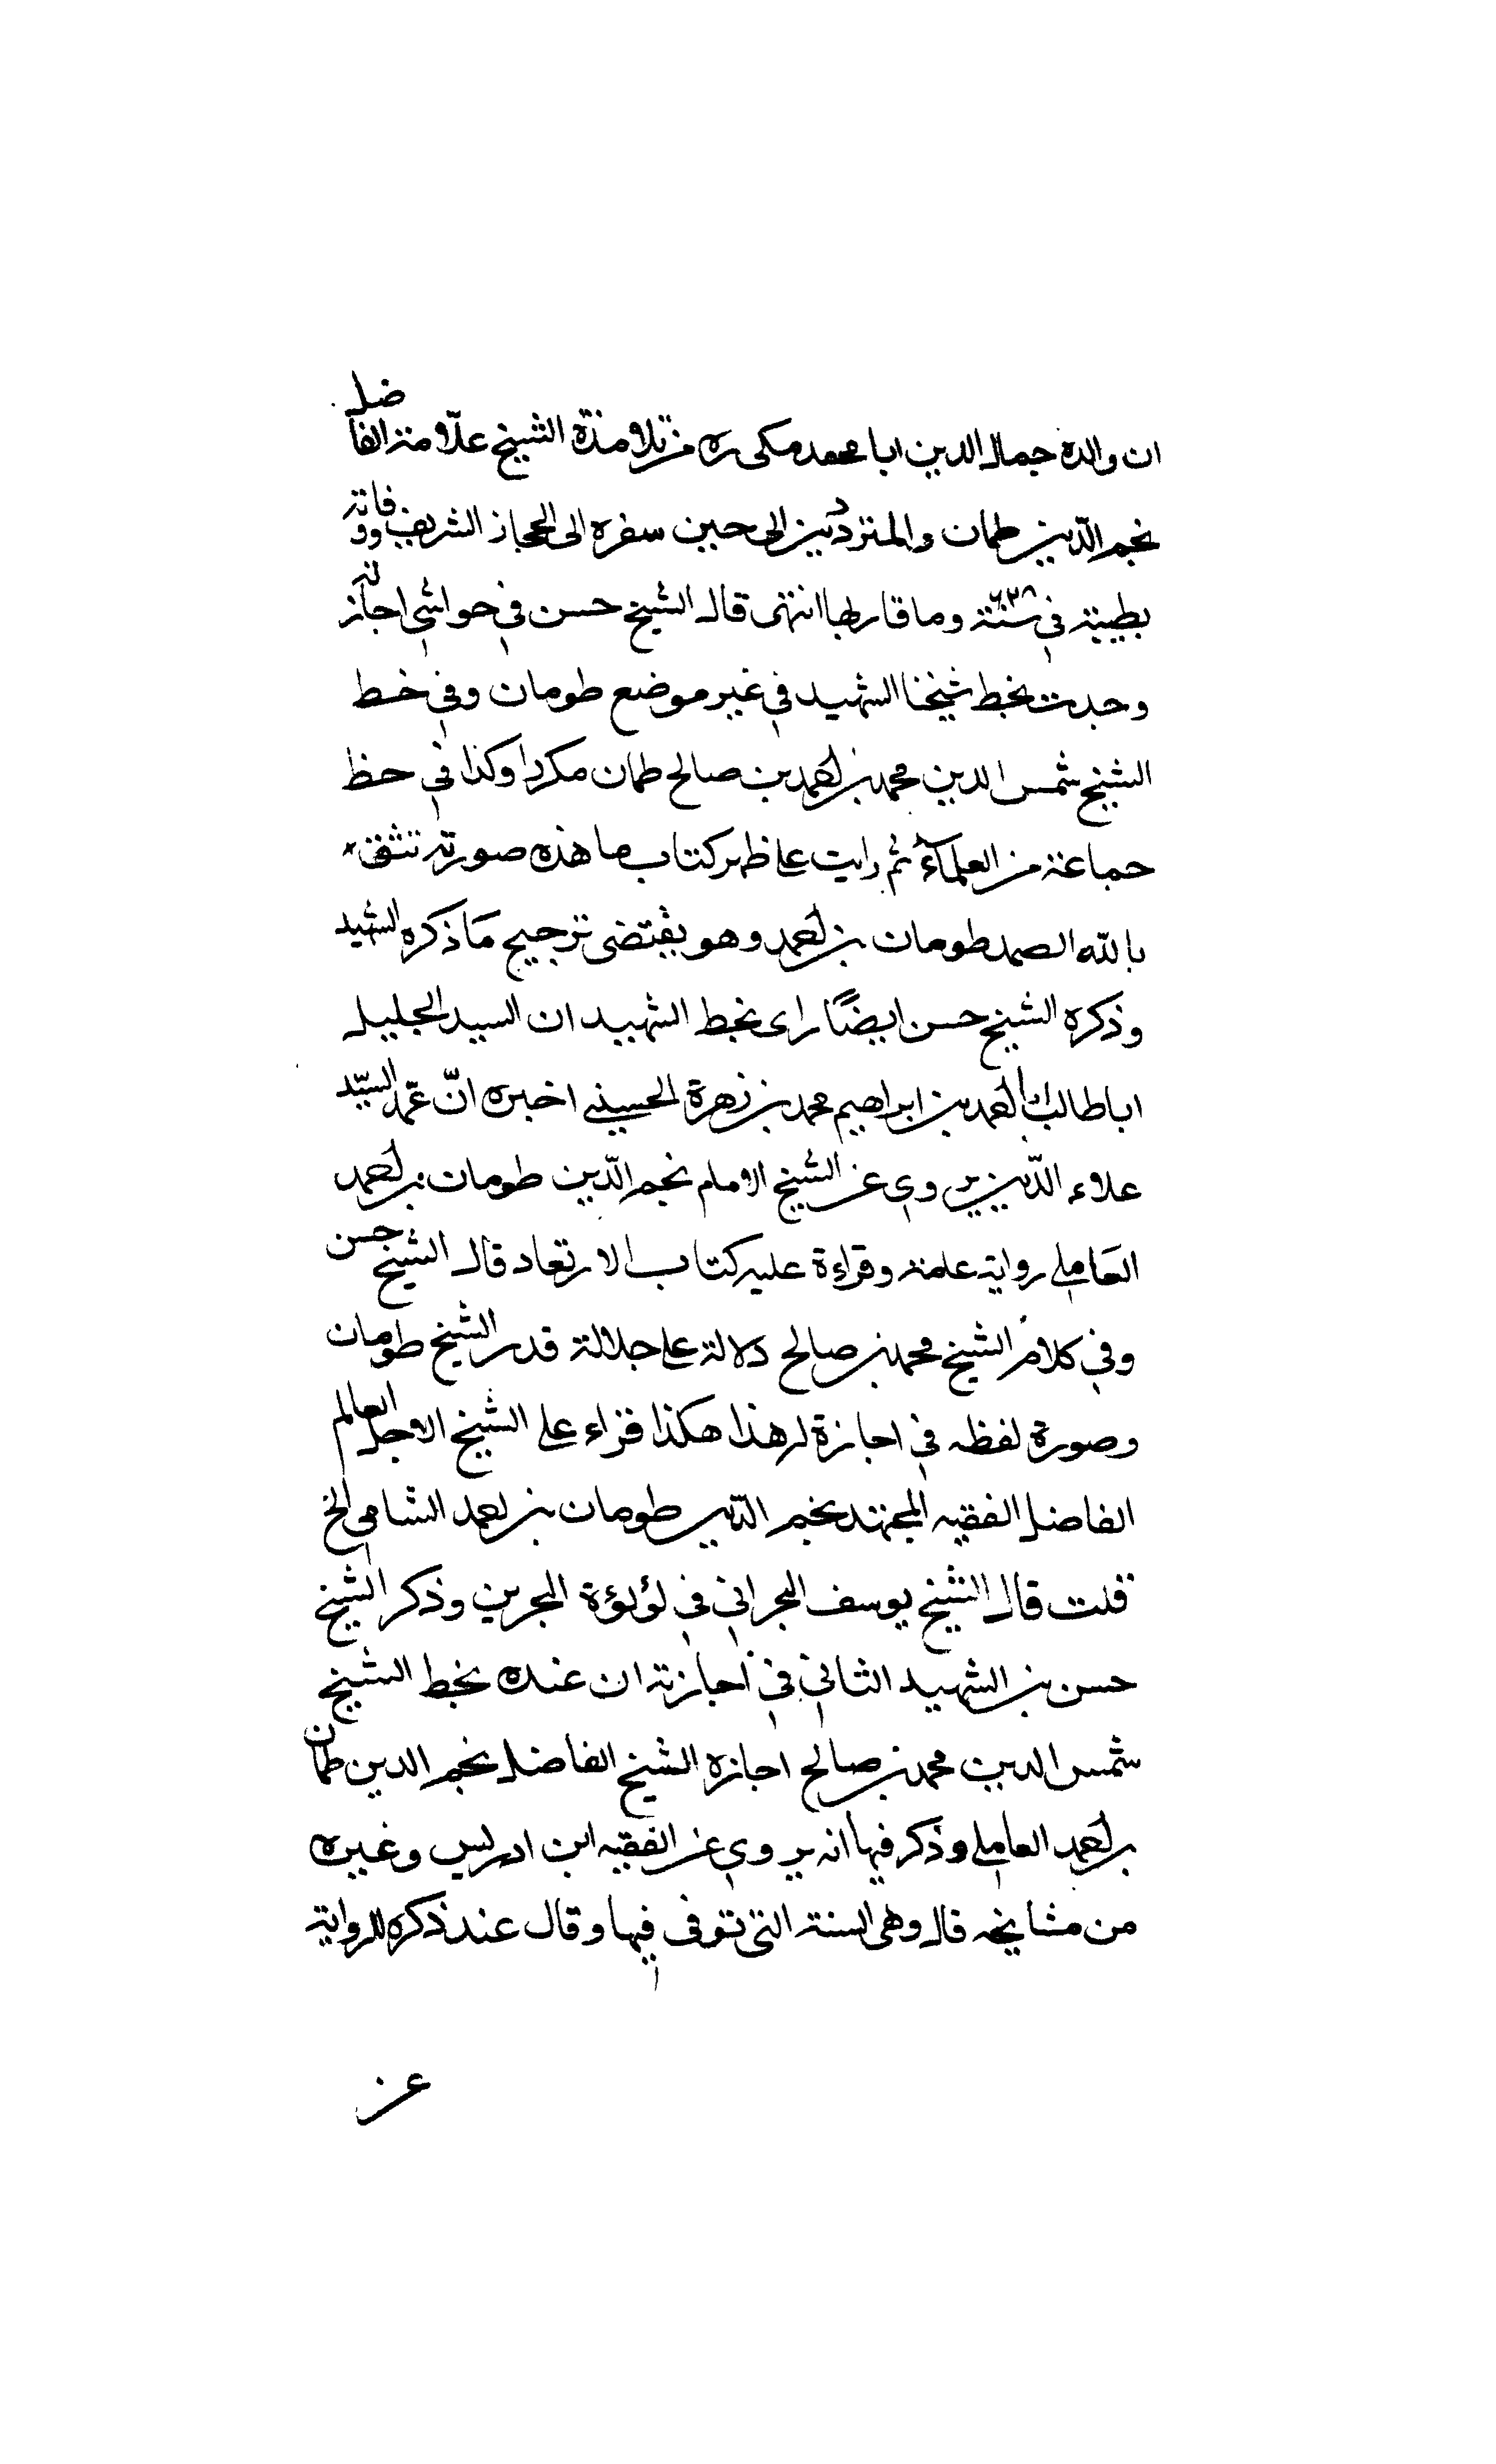 ان والده جمال الدين ابا محمد مكى ره من تلامذة الشيخ علامة الفاضل
نجم الدين طمان والمترددين الى حين سفره الى الحجاز الشريف ووفاته
بطيبة في سنة ٦٣٨ وما قاربها انتهى قال الشيخ حسن في حواشى اجازته
وجدت بخط شيخنا الشهيد في غير موضع طومان وفي خط
الشيخ شمس الدين محمد بن احمد بن صالح طمان مكررا وكذا في خط
جماعة من العلماء ثم رايت على ظهر كتاب ما هذه صورته تثق
بالله الصمد طومان بن احمد وهو يقتضى ترجيح ما ذكره الشهيد
وذكره الشيخ حسن ايضًا راى بخط الشهيد ان السيد الجليل
ابا طالب احمد بن ابراهيم محمد بن زهرة الحسيني اخبره انّ عمّه السيّد
علاء الدّين يروي عن الشيخ الامام نجم الدّين طومان بن احمد
العاملي رواية عامة وقراءة عليه كتاب الارشاد قال الشيخ حسن
وفي كلام الشيخ محمد بن صالح دلالة على جلالة قدر الشيخ طومان
وصورة لفظه في اجازة لهذا هكذا قراء على الشيخ الاجل العالم
الفاضل الفقيه المجتهد نجم الدّين طومان بن احمد الشامي الخ
قلت قال الشيخ يوسف البحراني في لؤلؤة البحرين وذكر الشيخ
حسن بن الشهيد الثاني في اجازته ان عنده بخط الشيخ
شمس الدين محمد بن صالح اجازه الشيخ الفاضل نجم الدين طمان
بن احمد العاملي وذكر فيها انه يروي عن الفقيه ابن ادريس وغيره
من مشايخه قال وهى السنة التى توفى فيها وقال عند ذكره للرواية
عن